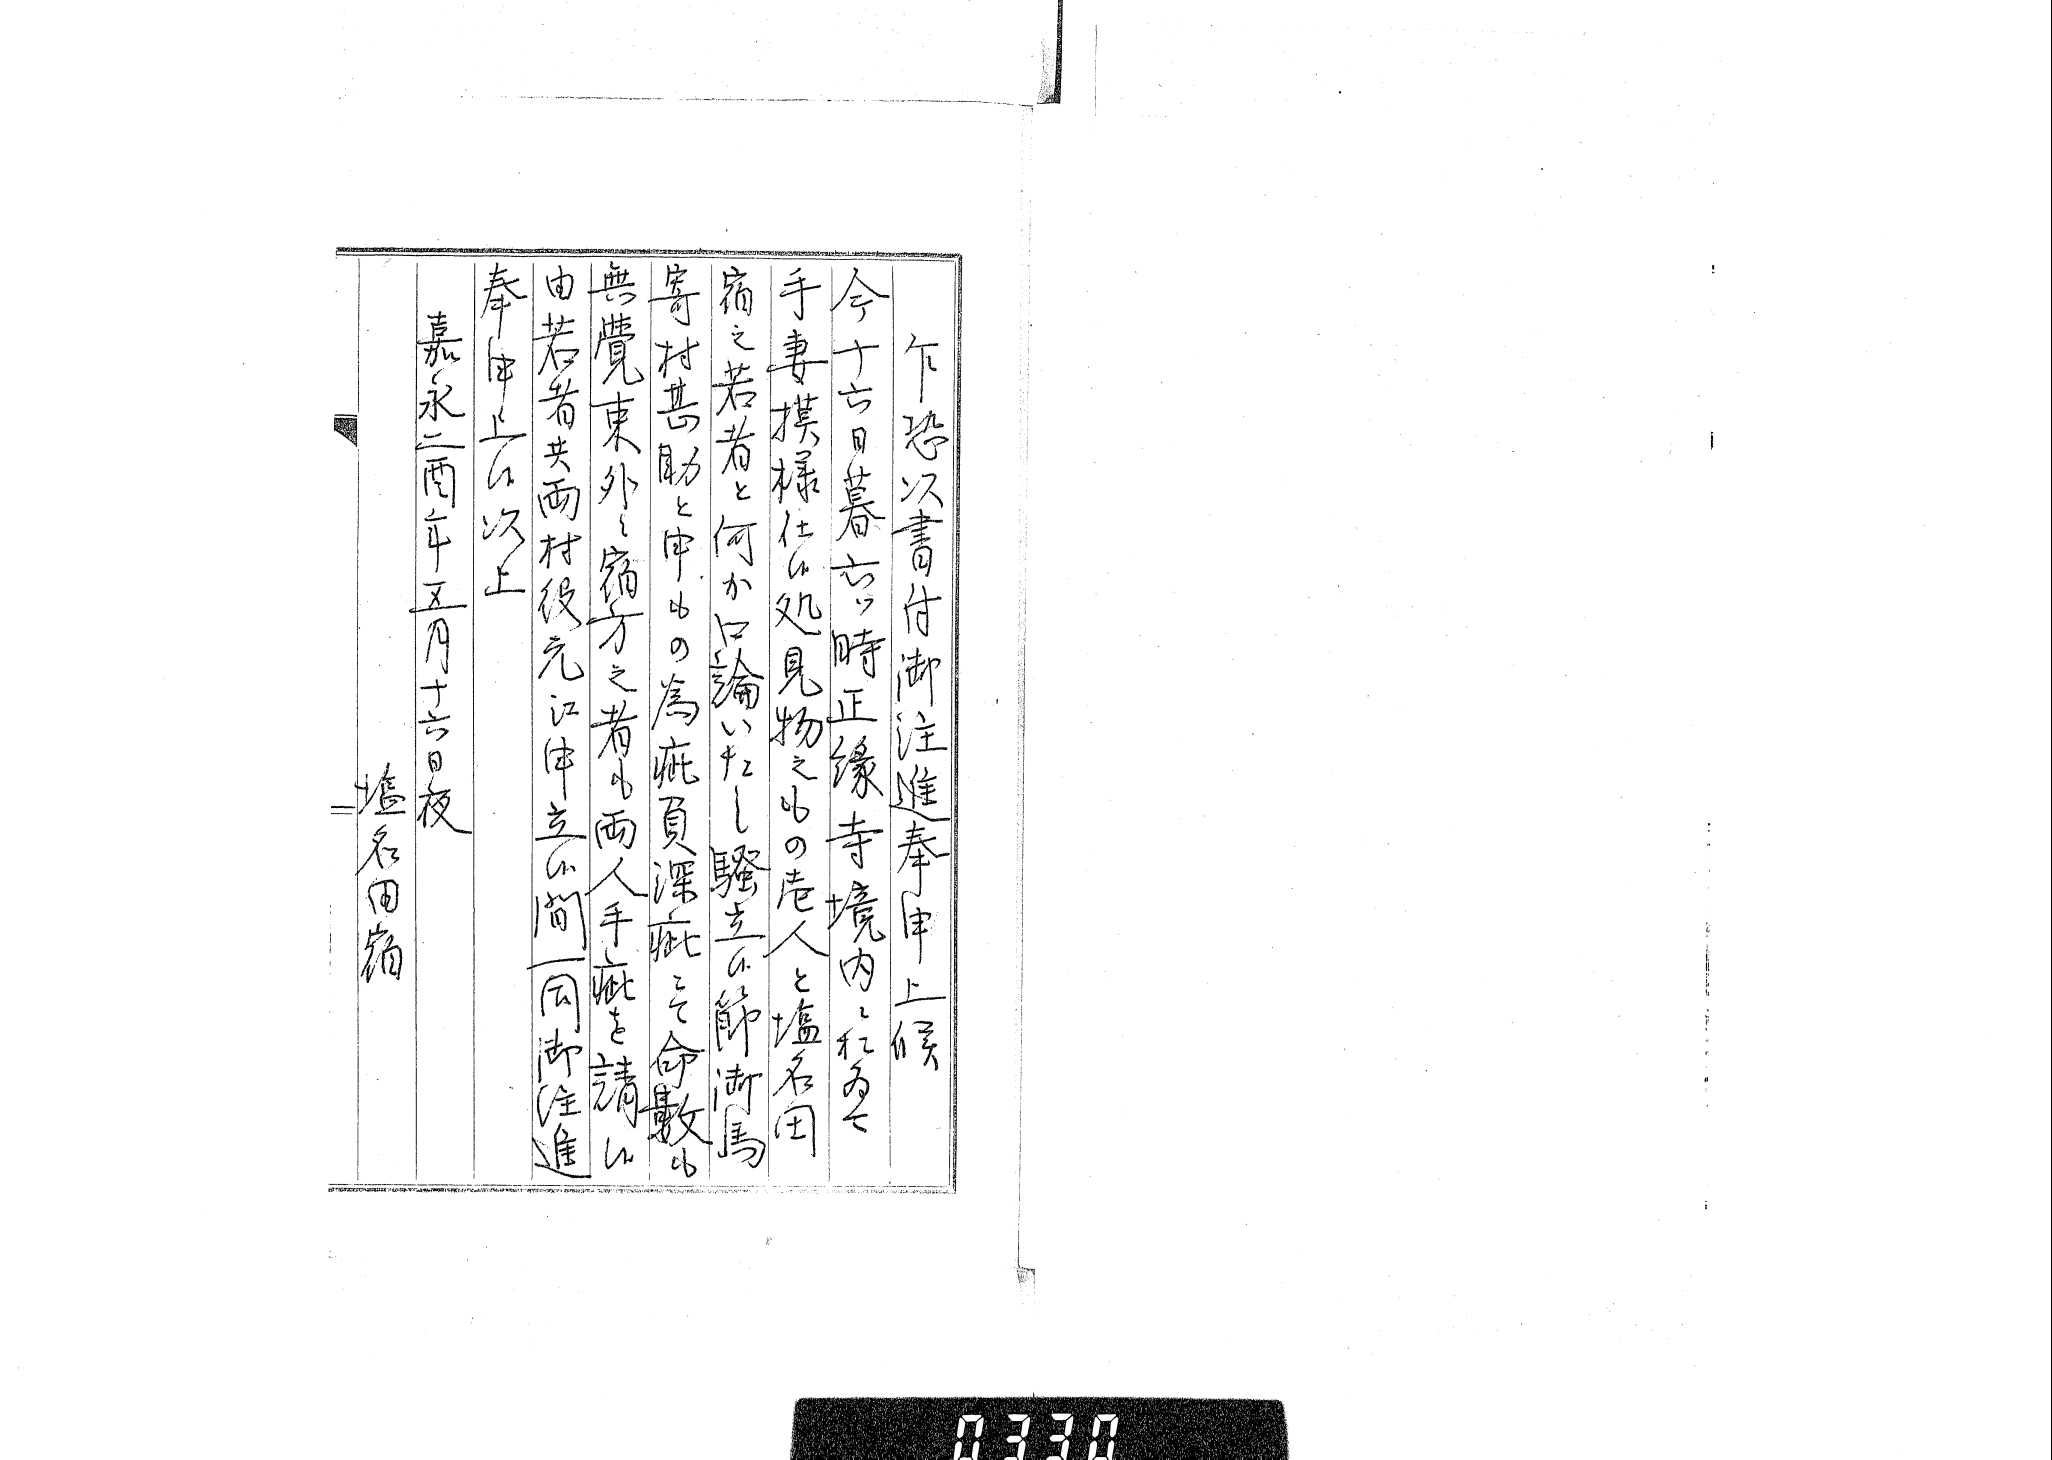 乍恐以書付御注進奉申上候
今十六日暮六ッ時正縁寺境内ニ於ゐて
手妻模様仕候処見物之もの壱人と塩名田
宿之若者と何か口論いたし騒立候節御馬
寄村甚助と申もの為疵負深疵ニて命数も
無覚束外ニ宿方之者も両人手疵を請候
由若者共両村役元江申立候間一同御注進
奉申上候以上
嘉永二酉年五月十六日夜
塩名田宿
0330